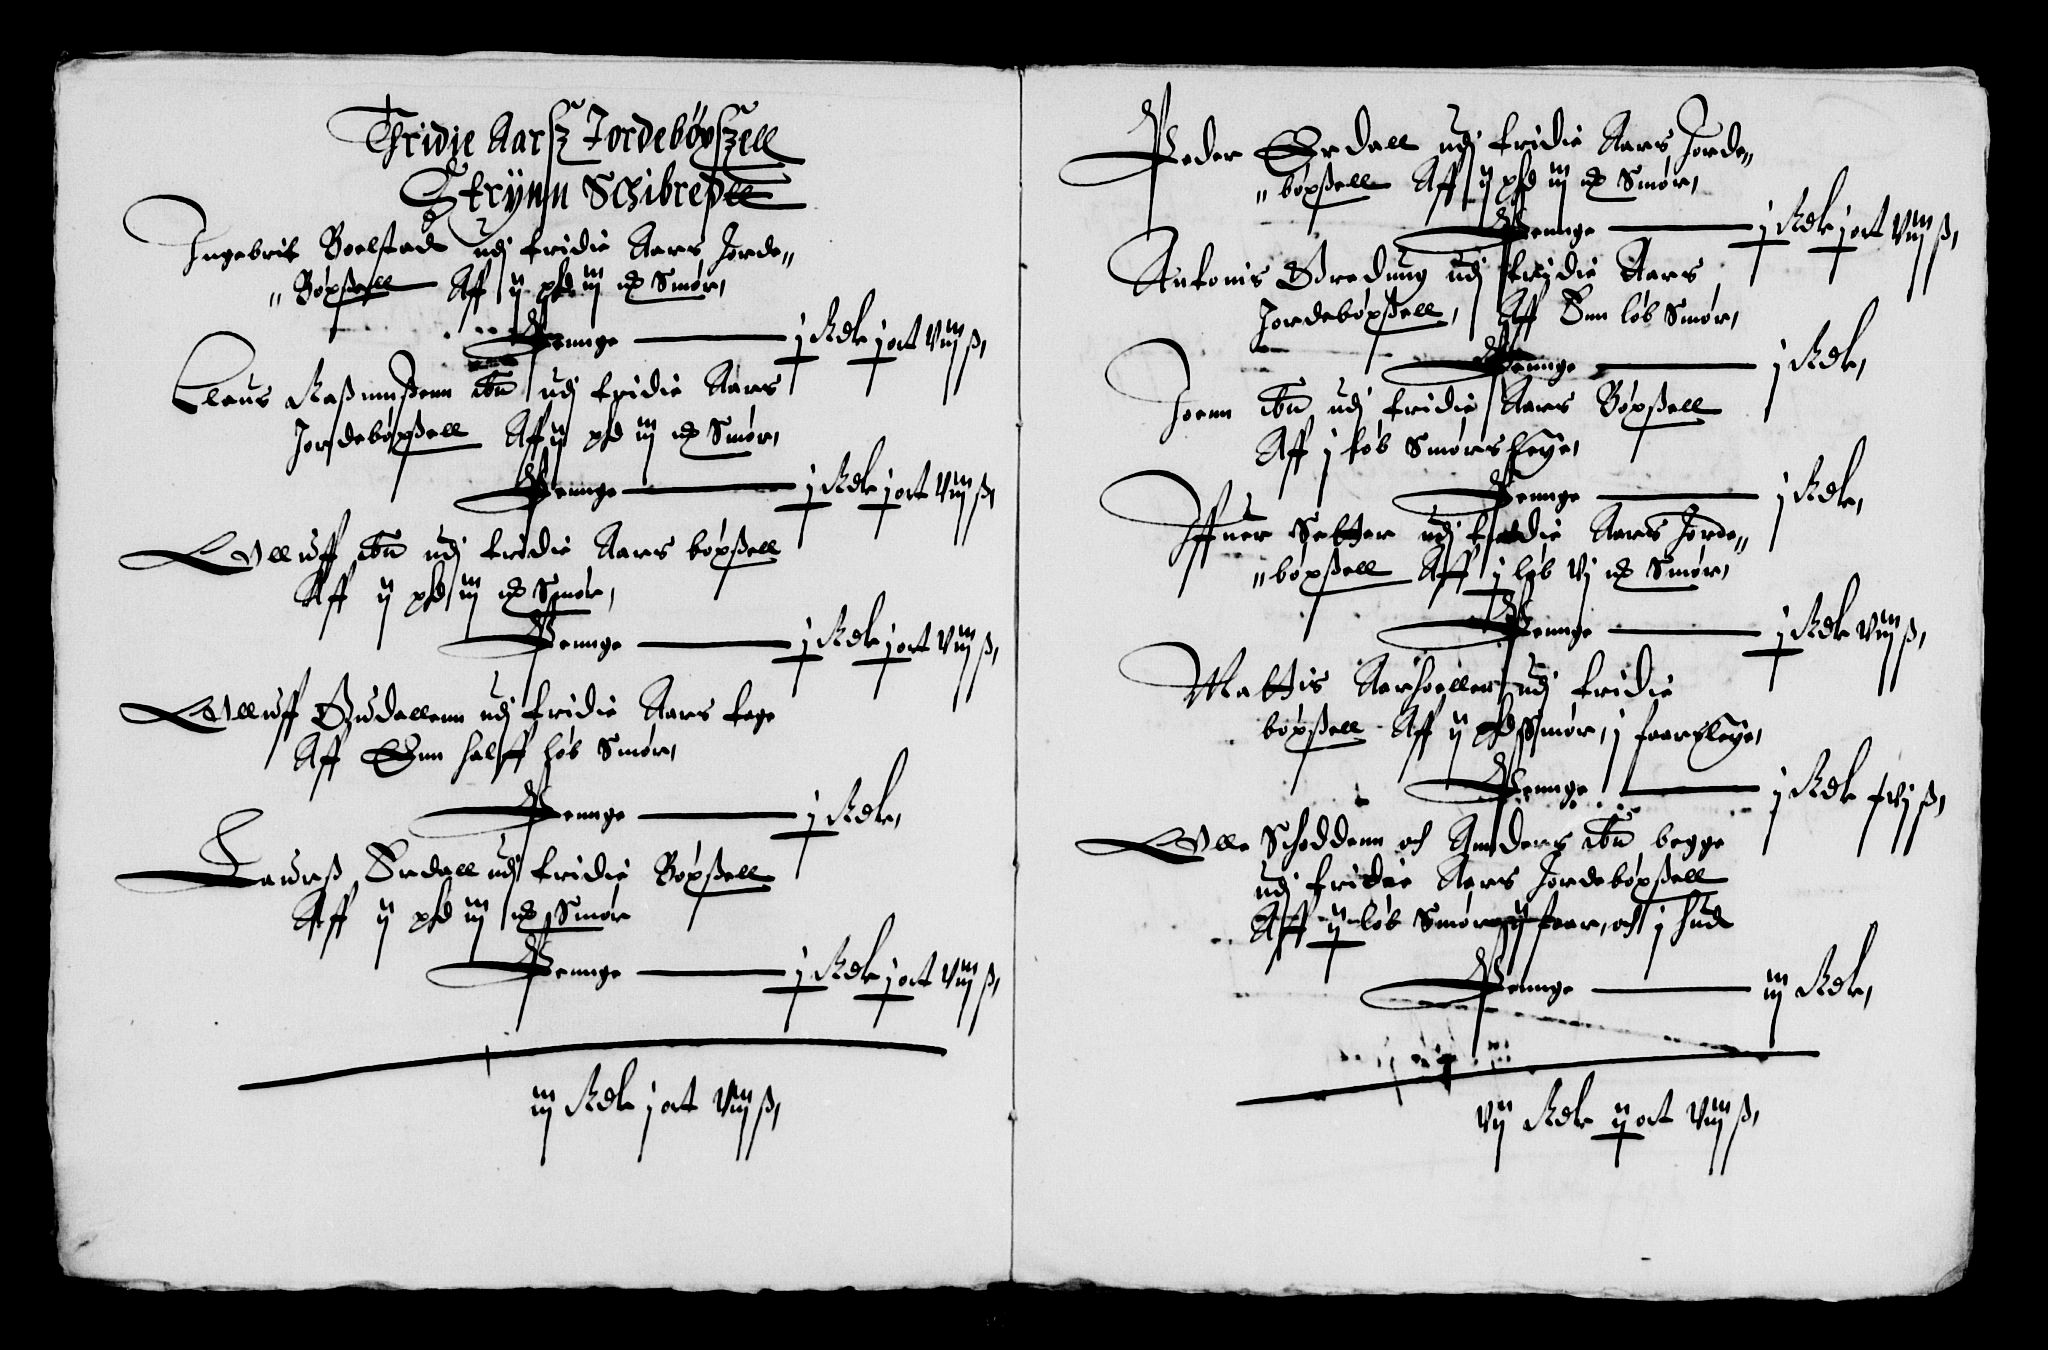 Thridie Aarsz Jordebøxszell
Strynn Schibrede
Ingebrit Boelstad udj tridie Aars Jorde„
„Bøxßell Aff ij pd iij mrk Smør,
Penge — j Rdr j ort viij ß,
Claus Raßmußenn ibn udj tridie Aars
Jordebøxßell Aff ij pd iij mrk Smør,
Penge — j Rdr j ort viij ß,
Olluff ibn udj tridie Aars bøxßell
Aff ij pd iij mrk Smør,
Penge — j Rdr j ort viij ß,
Olluff Gudallenn udj tridie Aars tage
Aff Enn halff løb Smør,
Penge — j Rdr,
Laurß Erdall udj tridie Bøxßell
Aff ij pd iij mrk Smør
Penge — j Rdr j ort viij ß,
iiij Rdr j ort viij ß,
Peder Erdall udj tridie Aars Jorde„
„bøxßell Aff ij pd iij mrk Smør,
Penge — j Rdr j ort viij ß,
Antonis Bredung udj tridie Aars
Jordebøxßell, Aff Enn løb Smør,
Penge — j Rdr,
Joenn ibn udj tridie Aars Bøxßell
Aff j løb Smørs leye,
Penge — j Rdr,
Iffuer Setter udj tridie Aars Jorde„
„bøxßell Aff j løb vj mrk Smør,
Penge — j Rdr viij ß,
Mattis udj tridie
bøxßell Aff ij pd Smør, j faarsleye,
Penge — j Rdr xvj ß,
Olle Schoddenn och Annders ibn begge
udj tridie Aars Jordebøxßell
Aff ij løb Smør ij faar, och j hud
Penge — iij Rdr,
vij Rdr ij ort viij ß,